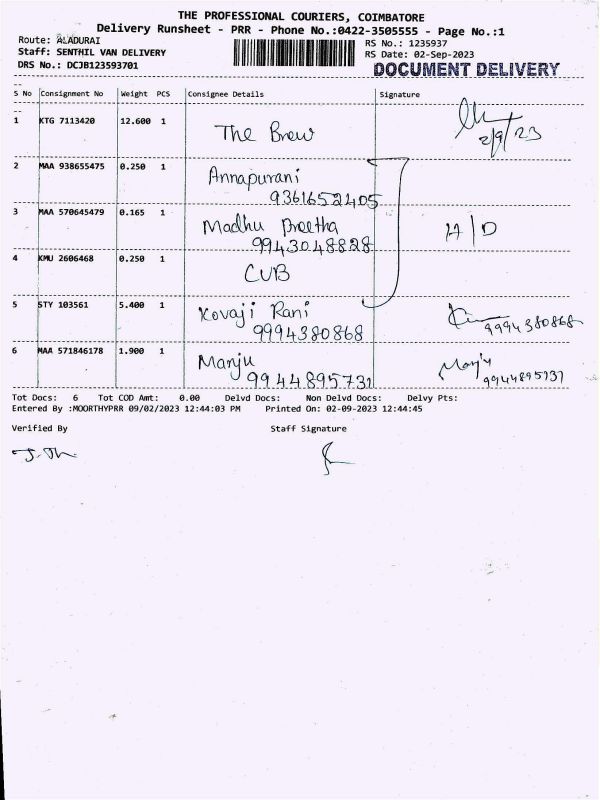 THE PROFESSIONAL COURIERS, COIMBATORE
Delivery Runsheet - PRR - Phone No.:0422-3505555 - Page No.:1
Route: ALADURAI
RS No.: 1235937
Staff: SENTHIL VAN DELIVERY
RS Date: 02-Sep-2023
DRS No.: DCJB123593701
DOCUMENT DELIVERY
S No Consignment No Weight PCS Consignee Details Signature
1 KTG 7113420 12.600 1 The Brew 2/9/23
2 MAA 938655475 0.250 1 Annapurani
9361652405
3 MAA 570645479 0.165 1 Madhu Preetha H/D
9943048828
4 KMU 2606468 0.250 1 CUB
5 STY 103561 5.400 1 Kovaji Rani
9994380868 9994380868
6 MAA 571846178 1.900 1 Manju Manju
9944895731 9944895737
Tot Docs: 6 Tot COD Amt: 0.00 Delvd Docs: Non Delvd Docs: Delvy Pts:
Entered By :MOORTHYPRR 09/02/2023 12:44:03 PM Printed On: 02-09-2023 12:44:45
Verified By Staff Signature